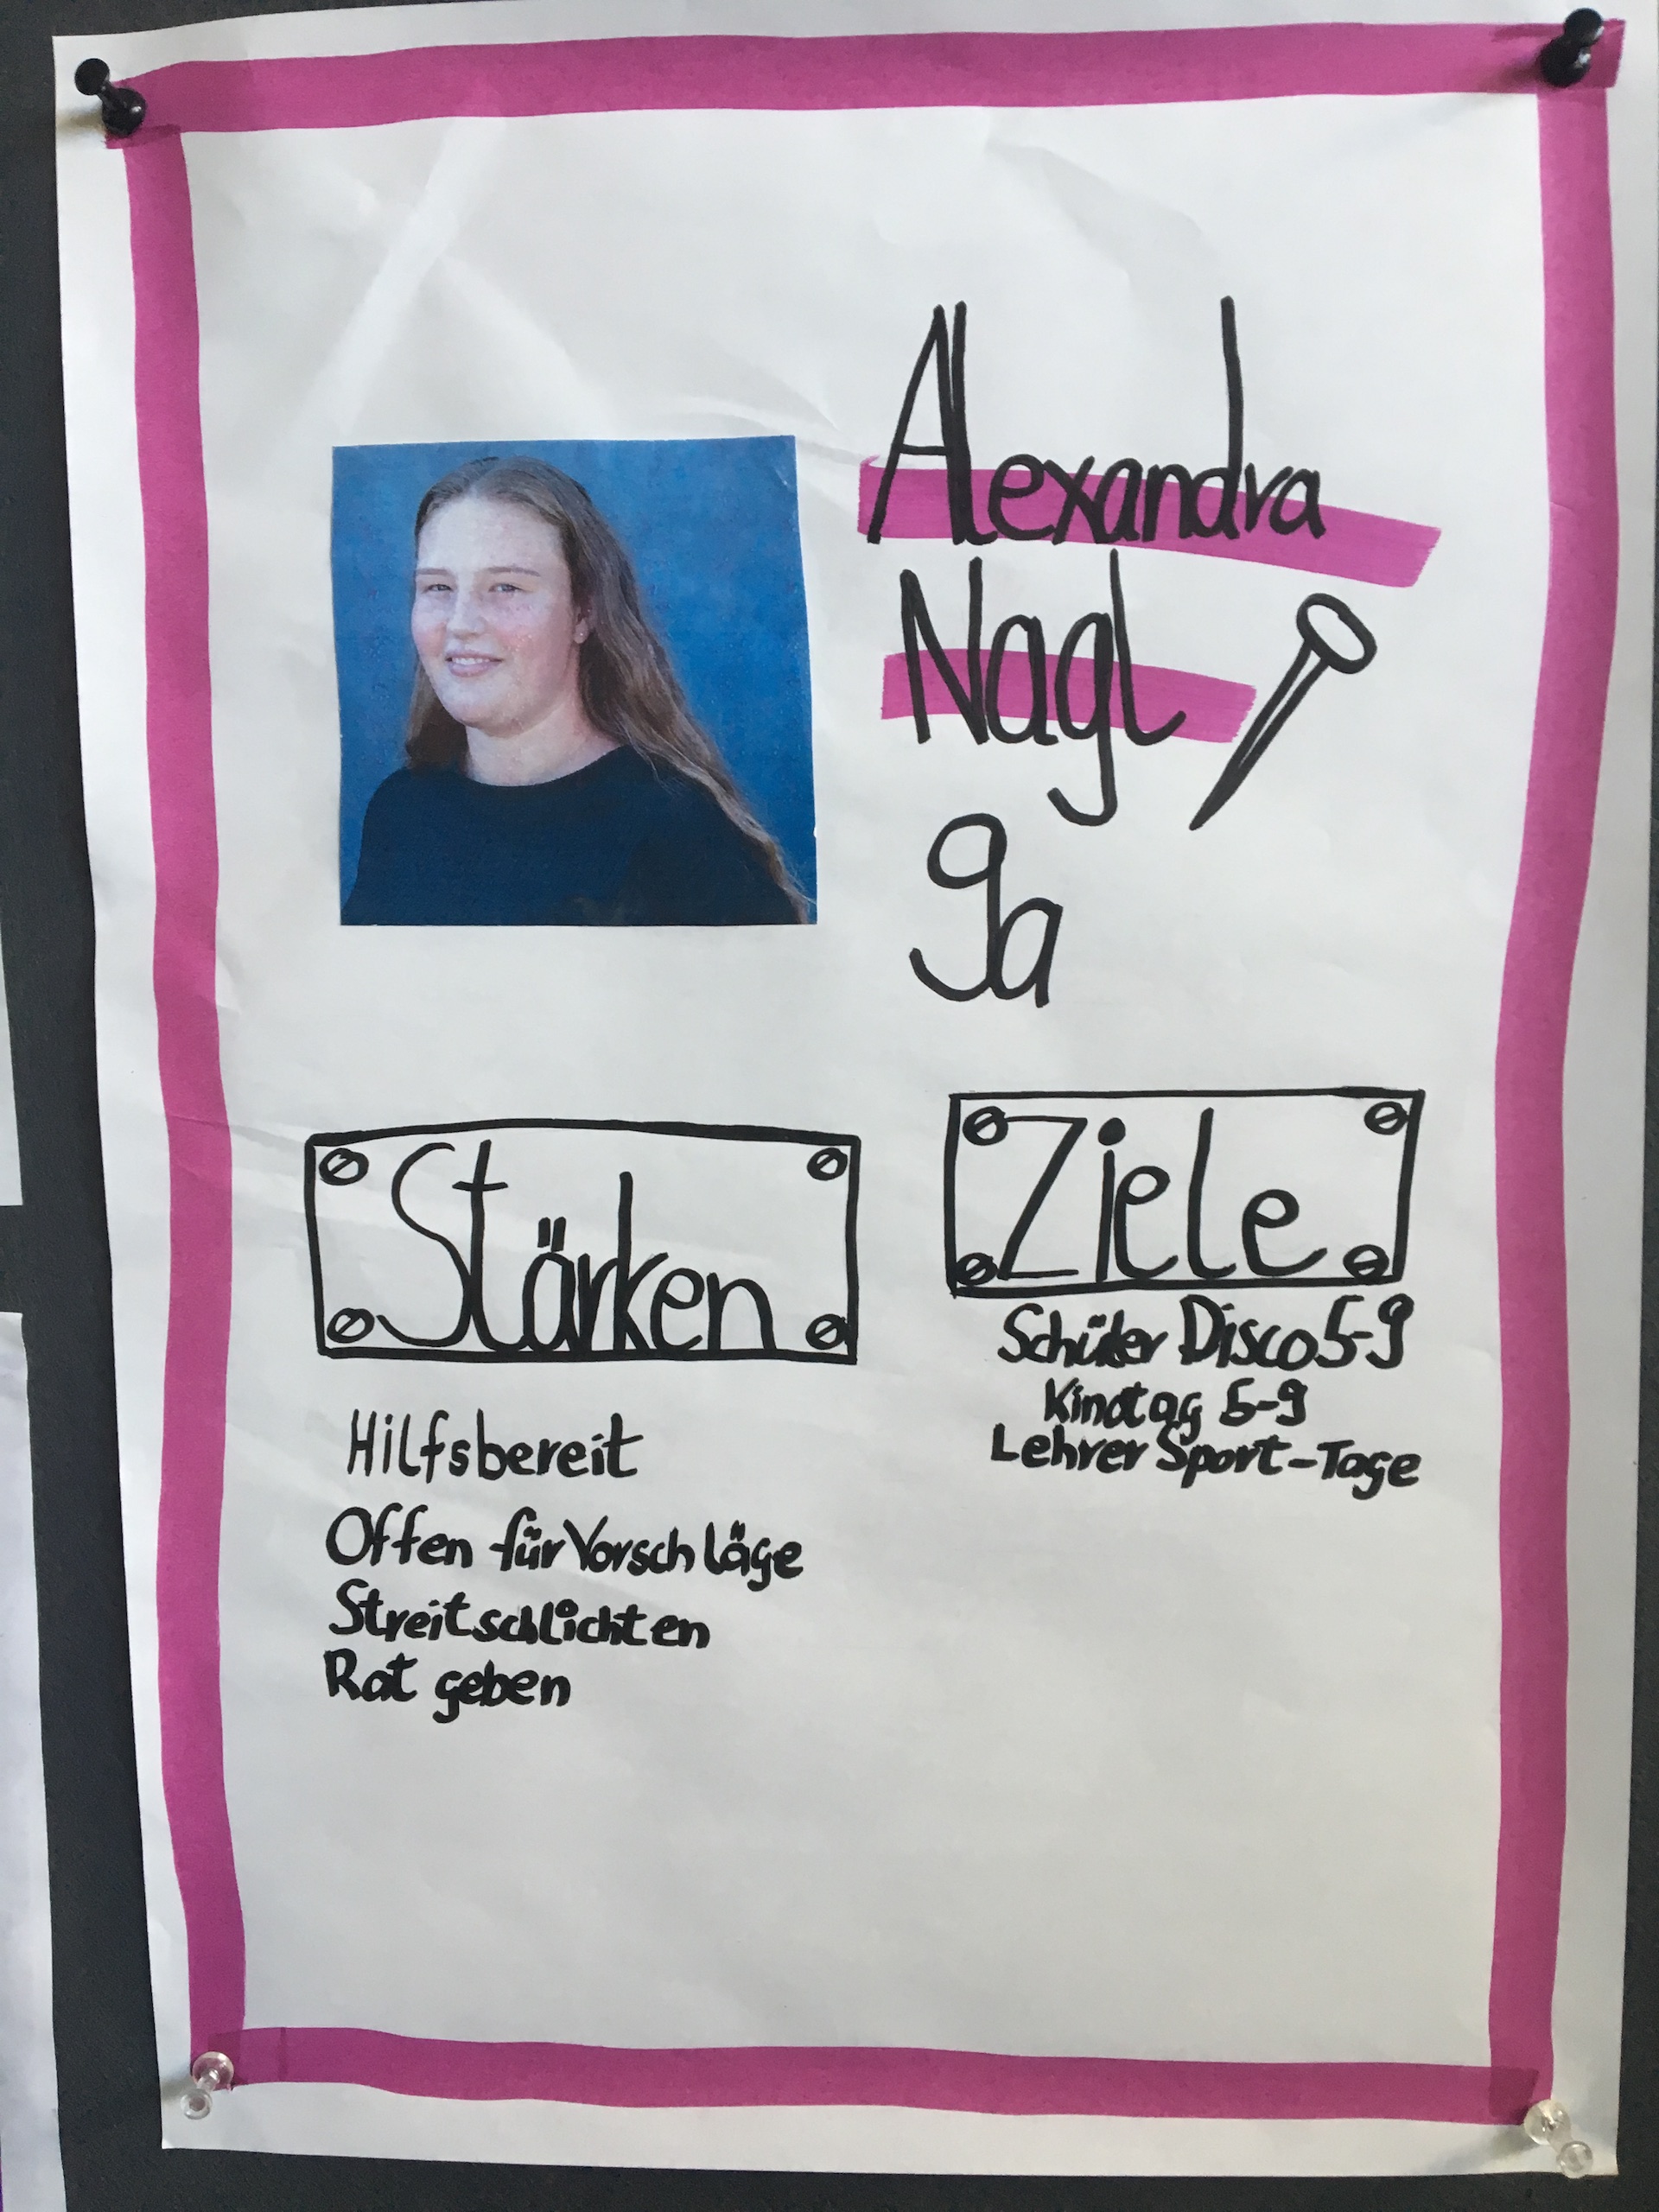 Alexandra
Nagl
9a
Stärken
Hilfsbereit
Offen für Vorschläge
Streitschlichten
Rat geben
Ziele
Schüler Disco 5-9
Kinotag 5-9
Lehrer Sport-Tage